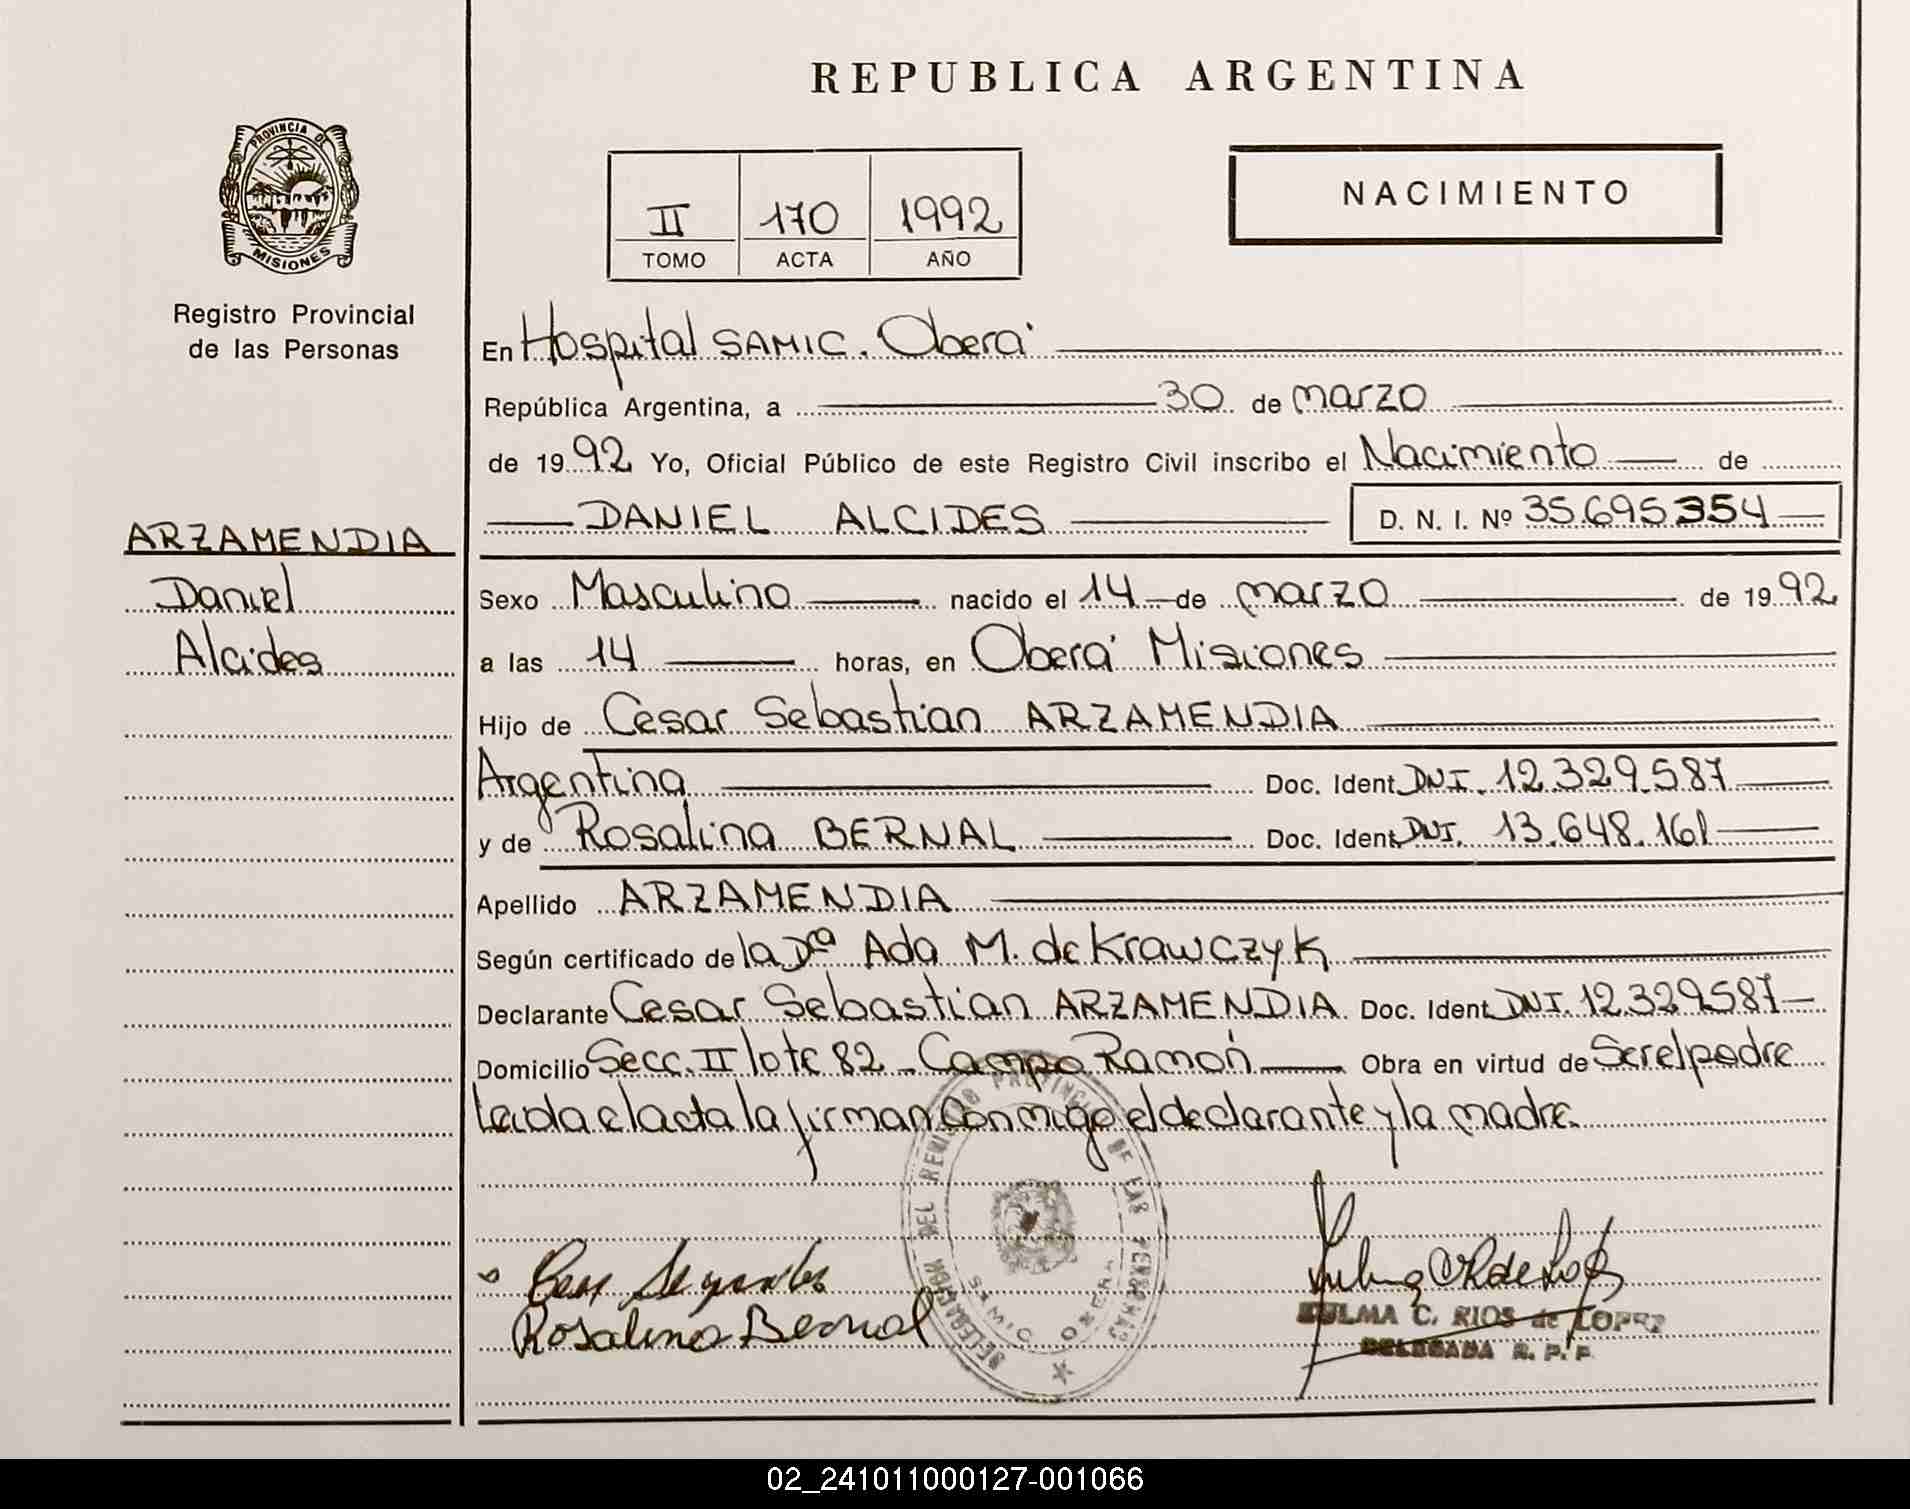 REPUBLICA ARGENTINA
PROVINCIA DE MISIONES
Registro Provincial
de las Personas
II 170 1992
TOMO ACTA AÑO
NACIMIENTO
En Hospital SAMIC. Oberá
República Argentina, a 30 de marzo
de 1992 Yo, Oficial Público de este Registro Civil inscribo el Nacimiento de
DANIEL ALCIDES D. N. I. Nº 35.695354
ARZAMENDIA
Daniel
Alcides
Sexo Masculino nacido el 14 de marzo de 1992
a las 14 horas, en Oberá Misiones
Hijo de Cesar Sebastian ARZAMENDIA
Argentina Doc. Ident. DNI. 12.329.587
y de Rosalina BERNAL Doc. Ident. DNI. 13.648.161
Apellido ARZAMENDIA
Según certificado de la Dra Ada M. de Krawczyk
Declarante Cesar Sebastian ARZAMENDIA. Doc. Ident. DNI. 12.329587
Domicilio Secc. II lote 82 - Campo Ramón Obra en virtud de Ser el padre
Leida el acta la firman conmigo el declarante y la madre.
DELEGACION DEL REGISTRO PROVINCIAL DE LAS PERSONAS
SAMIC OBERA
Rosalina Bernal
ZULMA C. RIOS de LOPEZ
DELEGADA R. P. P.
02_241011000127-001066